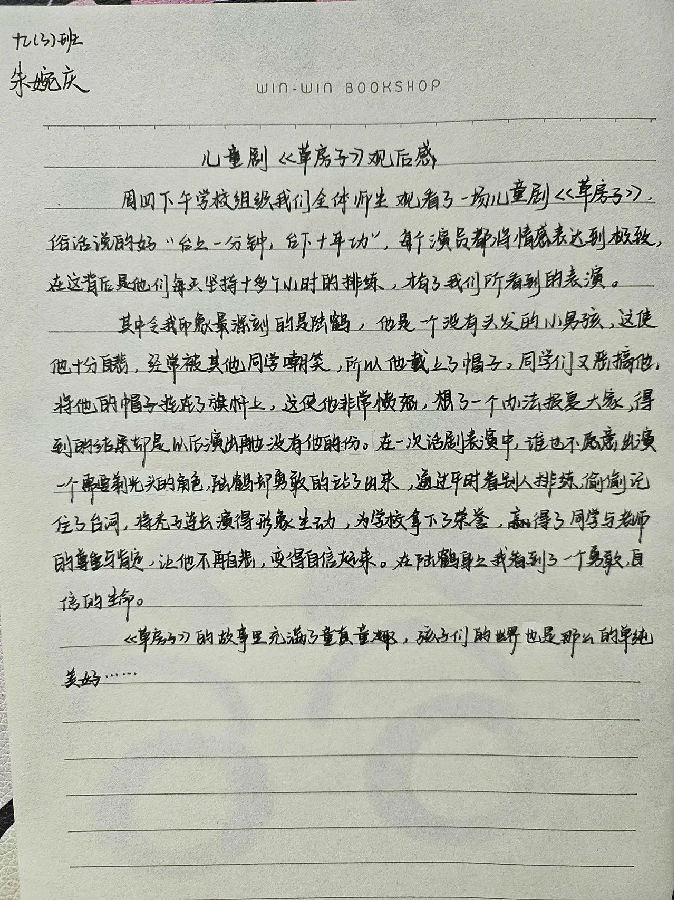 九(3)班
朱婉庆
WIN-WIN BOOKSHOP
儿童剧《草房子》观后感
周四下午学校组织我们全体师生观看了一场儿童剧《草房子》.
俗话说的好"台上一分钟,台下十年功",每个演员都将情感表达到极致,
在这背后是他们每天坚持十多个小时的排练,才有了我们所看到的表演。
其中令我印象最深刻的是陆鹤,他是一个没有头发的小男孩,这使
他十分自卑,经常被其他同学嘲笑,所以他戴上了帽子。同学们又恶搞他,
将他的帽子挂在了旗杆上,这使他非常愤怒,想了一个办法报复大家,得
到的结果却是以后演出再也没有他的份。在一次话剧表演中,谁也不愿意出演
一个需要剃光头的角色,陆鹤却勇敢的站了出来,通过平时看别人排练,偷偷记
住了台词,将秃子连长演得形象生动,为学校拿下了荣誉,赢得了同学与老师
的尊重与肯定,让他不再自卑,变得自信起来。在陆鹤身上我看到了一个勇敢,自
信的生命。
《草房子》的故事里充满了童真童趣,孩子们的世界也是那么的单纯
美好……